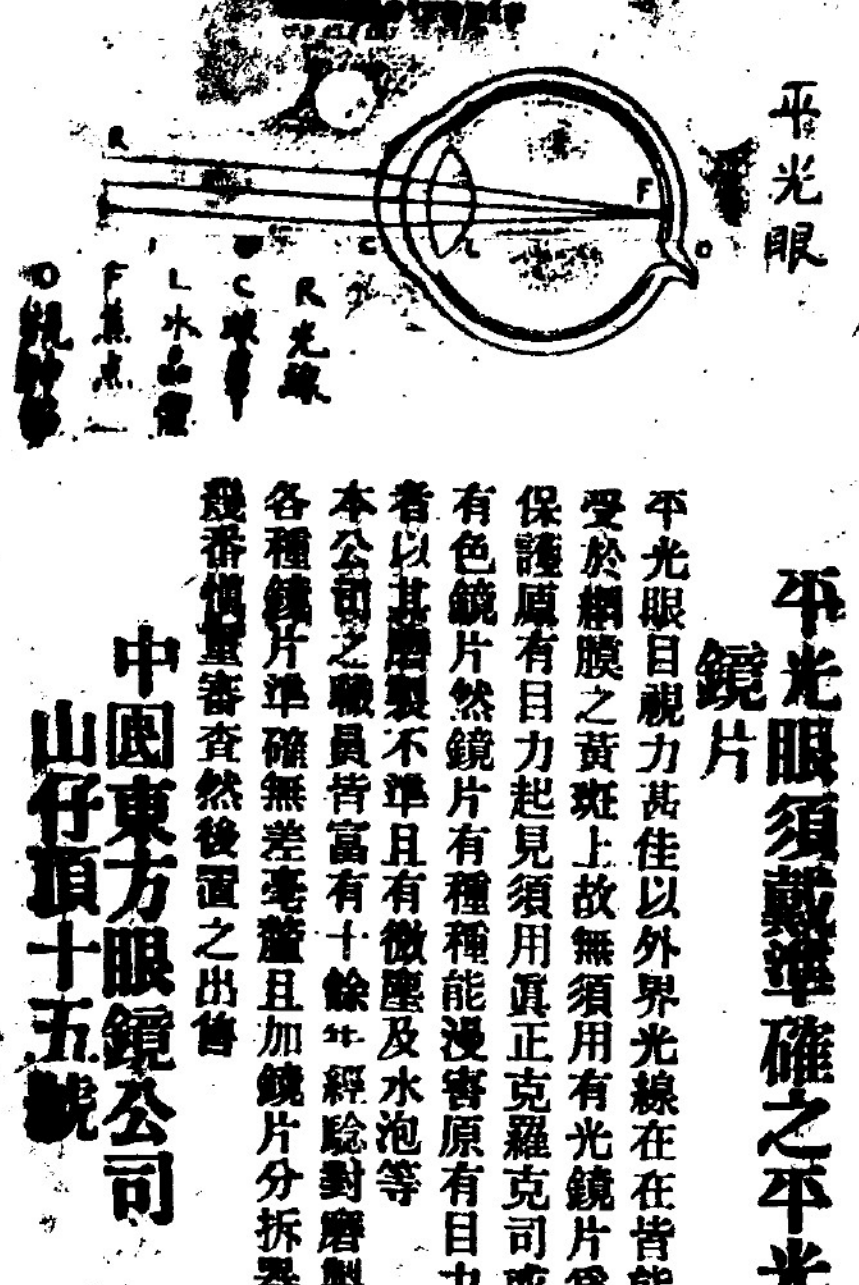 平光眼
R
F
C
L
O
R 光線
C 眼膜
L 水晶體
F 焦点
O 視神經
平光眼須戴準確之平光
鏡片
平光眼目視力甚佳以外界光線在在皆能
受於網膜之黃斑上故無須用有光鏡片爲
保護原有目力起見須用眞正克羅克司或
有色鏡片然鏡片有種種能漫害原有目力
者以其磨製不準且有微塵及水泡等
本公司之職員皆富有十餘年經驗對磨製
各種鏡片準確無差毫釐且加鏡片分拆器
幾番慎重審査然後置之出售
中國東方眼鏡公司
山仔頂十五號